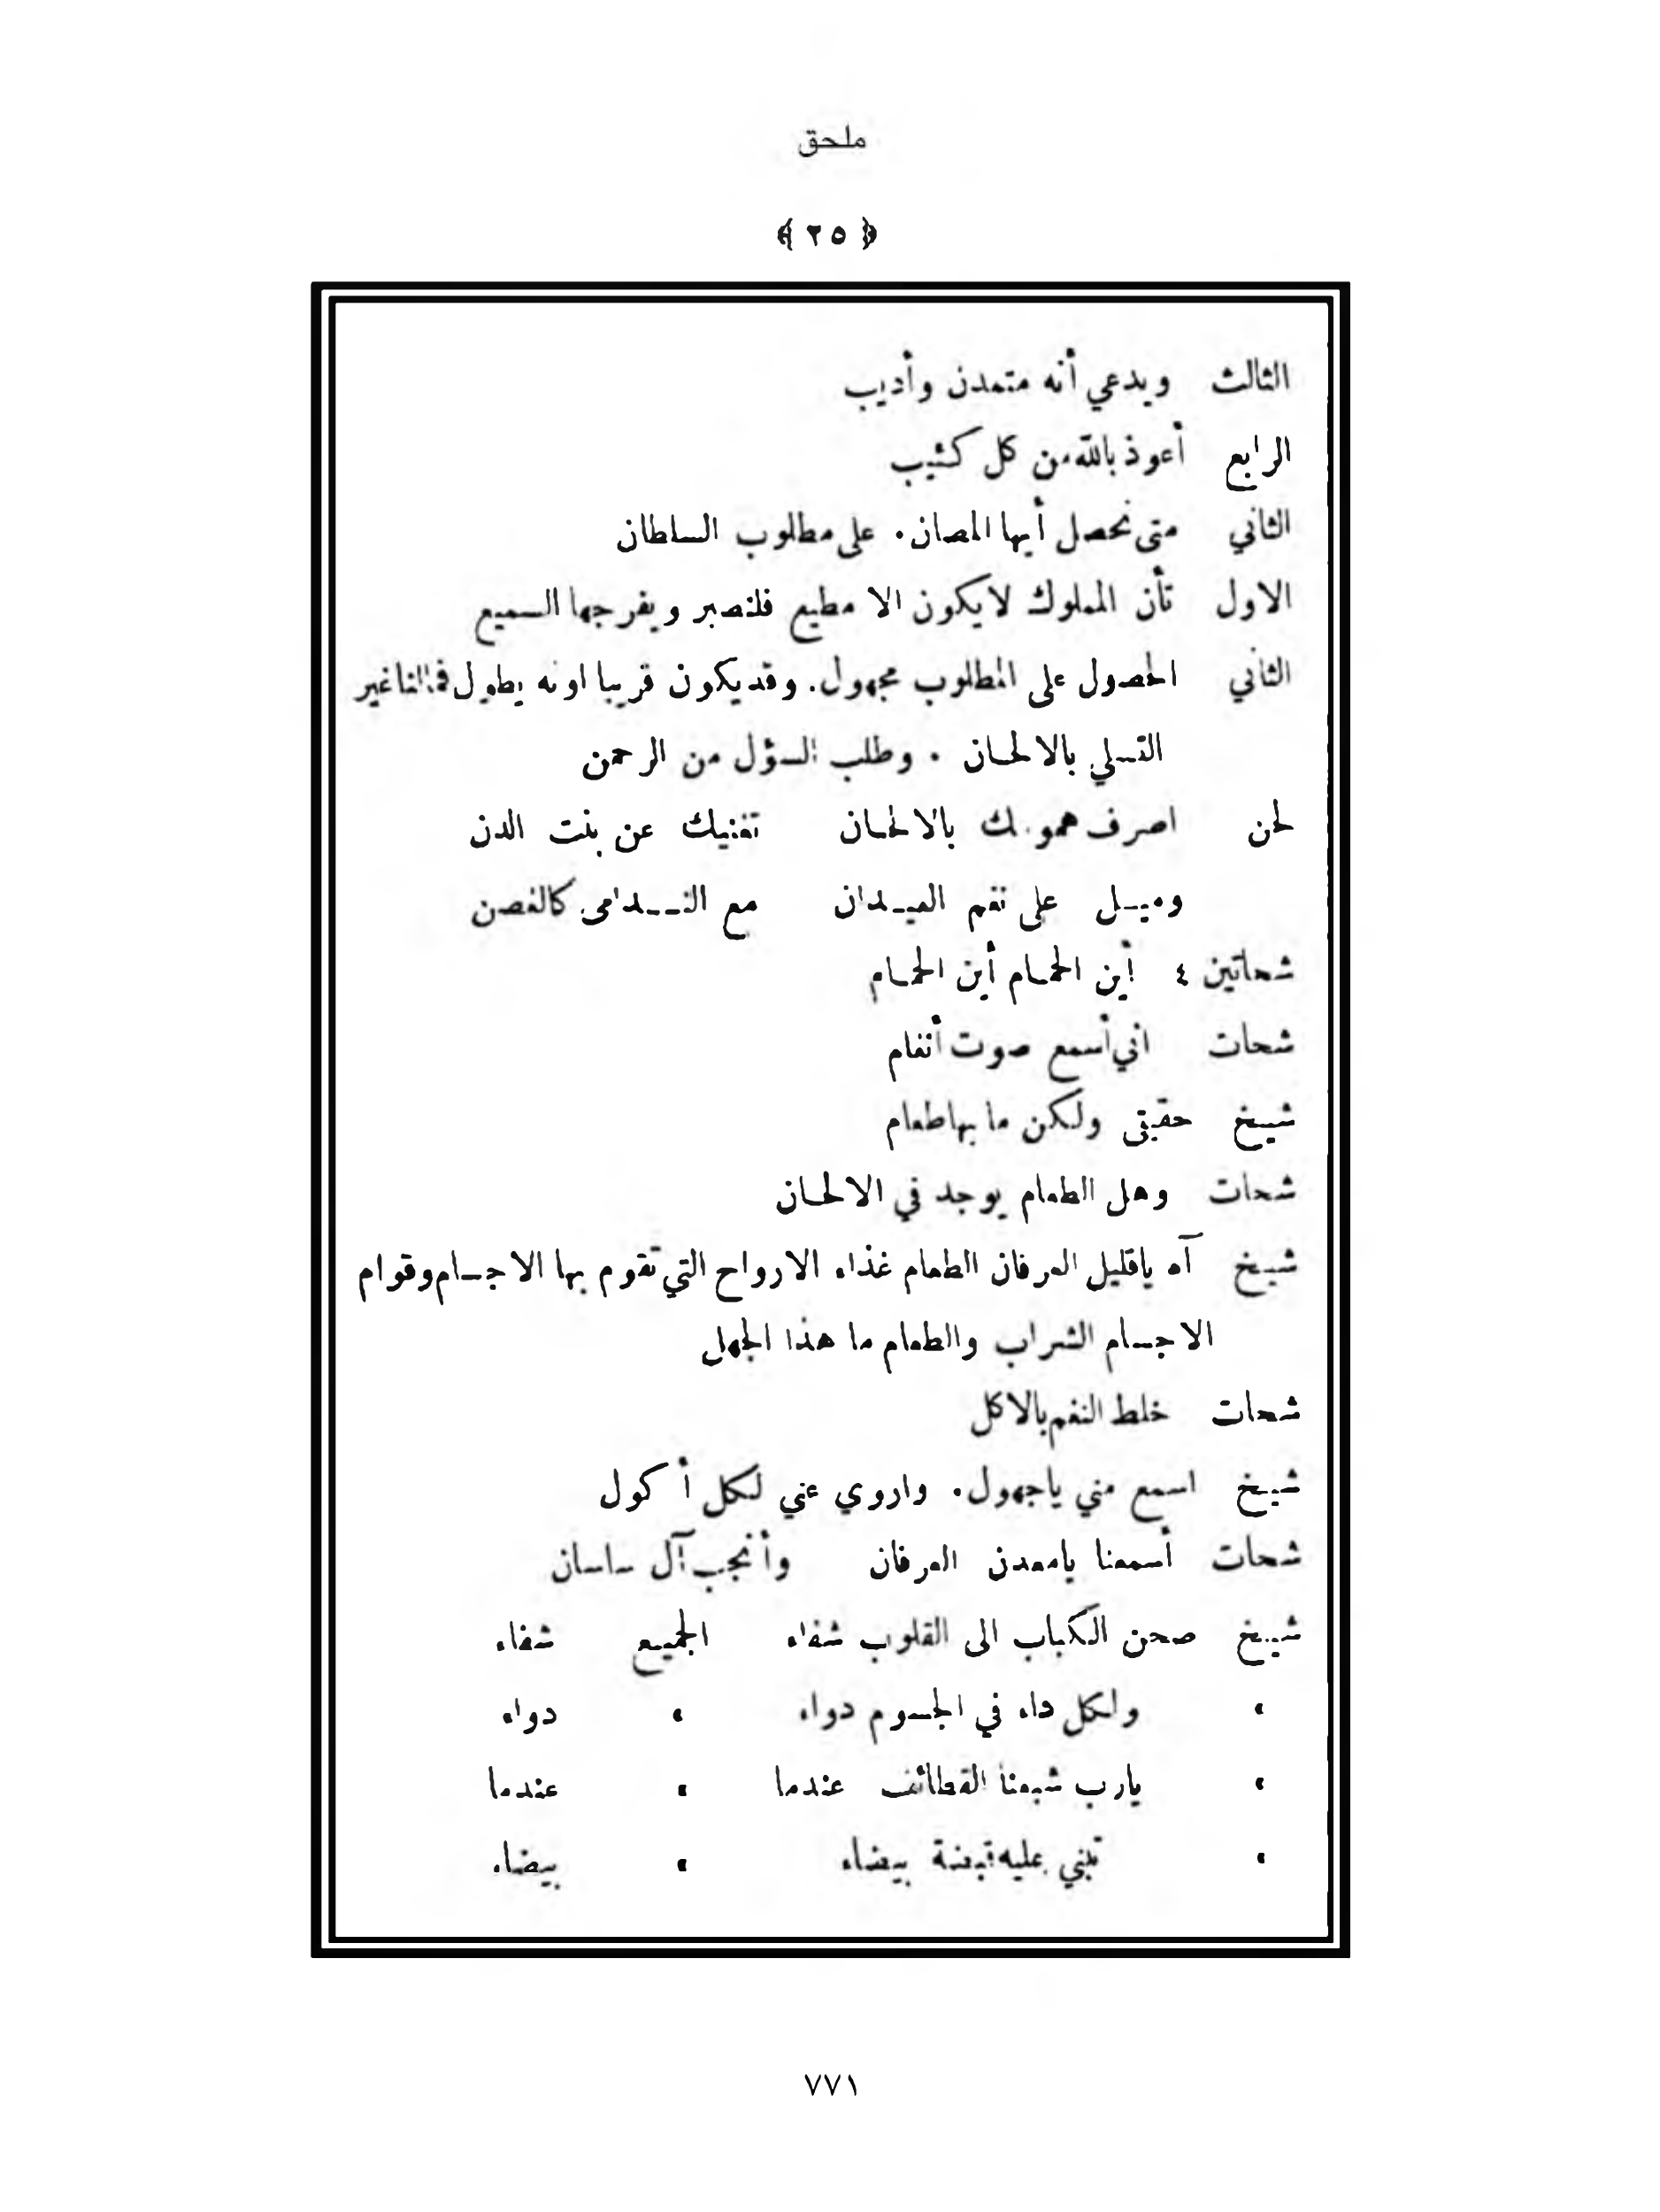 ملحق
﴿ ٢٥ ﴾
الثالث ويدعي أنه متمدن وأديب
الرابع أعوذ بالله من كل كئيب
الثاني متى نحصل أيها المصان. على مطلوب السلطان
الاول تأن المملوك لا يكون الا مطيع فلنصبر ويفرجها السميع
الثاني الحصول على المطلوب مجهول. وقد يكون قريبا اونه يطول فمالنا غير
التسلي بالالحان . وطلب السؤل من الرحمن
لحن اصرف همومك بالالحان تغنيك عن بنت الدن
وميل على نغم العيدان مع الندامى كالغصن
شحاتين ٤ أين الحمام أين الحمام
شحات اني أسمع صوت أنغام
شيخ حقيقي ولكن ما بها طعام
شحات وهل الطعام يوجد في الالحان
شيخ آه ياقليل العرفان الطعام غذاء الارواح التي تقوم بها الاجسام وقوام
الاجسام الشراب والطعام ما هذا الجهل
شحات خلط النغم بالاكل
شيخ اسمع مني ياجهول. واروي عني لكل أكول
شحات أسمعنا يامعدن العرفان وأنجب آل ساسان
شيخ صحن الكباب الى القلوب شفاء الجميع شفاء
» ولكل داء في الجسوم دواء » دواء
» يارب شبعنا القطائف عندما » عندما
» تبنى عليه قبضة بيضاء » بيضاء
٧٧١